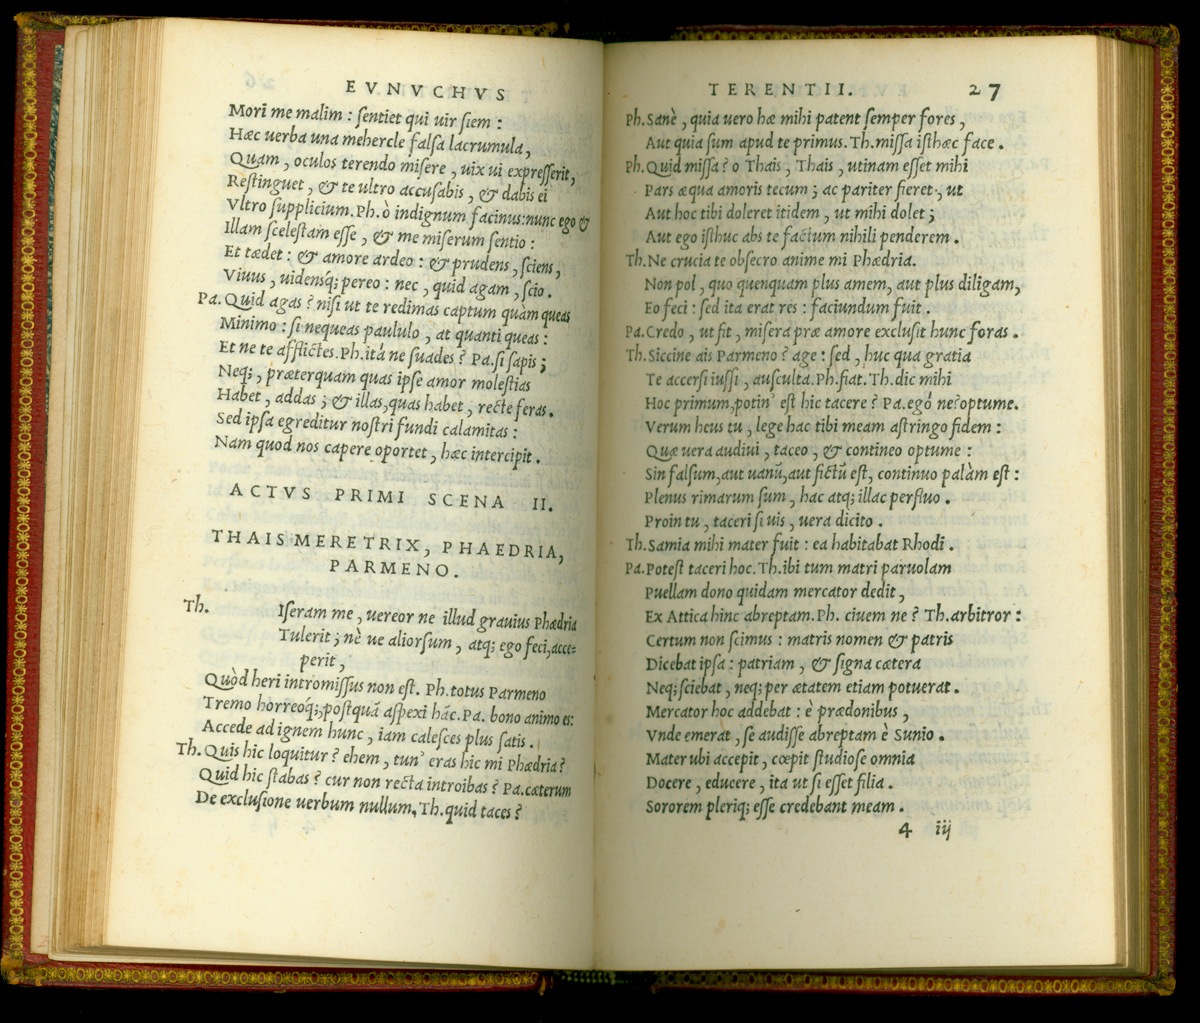 EVNVCHVS
Mori me malim : ſentiet qui uir ſiem :
Hæc uerba una mehercle falſa lacrumula,
Quam, oculos terendo miſere, uix ui expreſſerit,
Reſtinguet, & te ultro accuſabis, & dabis ei
Vltro ſupplicium. Ph. ò indignum facinus: nunc ego &
Illam ſceleſtam eſſe, & me miſerum ſentio :
Et tædet : & amore ardeo : & prudens, ſciens,
Viuus, uidensq; pereo : nec, quid agam, ſcio.
Pa. Quid agas ? niſi ut te redimas captum quàm queas
Minimo : ſi nequeas paululo, at quanti queas :
Et ne te afflictes. Ph. itá ne ſuades ? Pa. ſi ſapis ;
Neq;, præterquam quas ipſe amor moleſtias
Habet, addas ; & illas, quas habet, recte feras.
Sed ipſa egreditur noſtri fundi calamitas :
Nam quod nos capere oportet, hæc intercipit.
ACTVS PRIMI SCENA II.
THAIS MERETRIX, PHAEDRIA,
PARMENO.
Th. Iſeram me, uereor ne illud grauius Phædria
Tulerit ; nè ue aliorſum, atq; ego feci, acce-
perit,
Quòd heri intromiſſus non eſt. Ph. totus Parmeno
Tremo horreoq;, poſtquã aſpexi hãc. Pa. bono animo es:
Accede ad ignem hunc, iam caleſces plus ſatis.
Th. Quis hic loquitur ? ehem, tun' eras hic mi Phædria ?
Quid hic ſtabas ? cur non recta introibas ? Pa. cæterum
De excluſione uerbum nullum. Th. quid taces ?
TERENTII. 27
Ph. Sanè, quia uero hæ mihi patent ſemper fores,
Aut quia ſum apud te primus. Th. miſſa iſthæc face.
Ph. Quid miſſa ? o Thais, Thais, utinam eſſet mihi
Pars æqua amoris tecum ; ac pariter fieret, ut
Aut hoc tibi doleret itidem, ut mihi dolet ;
Aut ego iſthuc abs te factum nihili penderem.
Th. Ne crucia te obſecro anime mi Phædria.
Non pol, quo quenquam plus amem, aut plus diligam,
Eo feci : ſed ita erat res : faciundum fuit.
Pa. Credo, ut fit, miſera præ amore excluſit hunc foras.
Th. Siccine ais Parmeno ? age : ſed, huc qua gratia
Te accerſi iuſſi, auſculta. Ph. fiat. Th. dic mihi
Hoc primum, potin' eſt hic tacere ? Pa. egó ne? optume.
Verum heus tu, lege hac tibi meam aſtringo fidem :
Quæ uera audiui, taceo, & contineo optume :
Sin falſum, aut uanũ, aut fictũ eſt, continuo palàm eſt :
Plenus rimarum ſum, hac atq; illac perfluo.
Proin tu, taceri ſi uis, uera dicito.
Th. Samia mihi mater fuit : ea habitabat Rhodi.
Pa. Poteſt taceri hoc. Th. ibi tum matri paruolam
Puellam dono quidam mercator dedit,
Ex Attica hinc abreptam. Ph. ciuem ne ? Th. arbitror :
Certum non ſcimus : matris nomen & patris
Dicebat ipſa : patriam, & ſigna cætera
Neq; ſciebat, neq; per ætatem etiam potuerat.
Mercator hoc addebat : è prædonibus,
Vnde emerat, ſe audiſſe abreptam è Sunio.
Mater ubi accepit, cœpit ſtudioſe omnia
Docere, educere, ita ut ſi eſſet filia.
Sororem pleriq; eſſe credebant meam.
4 iij